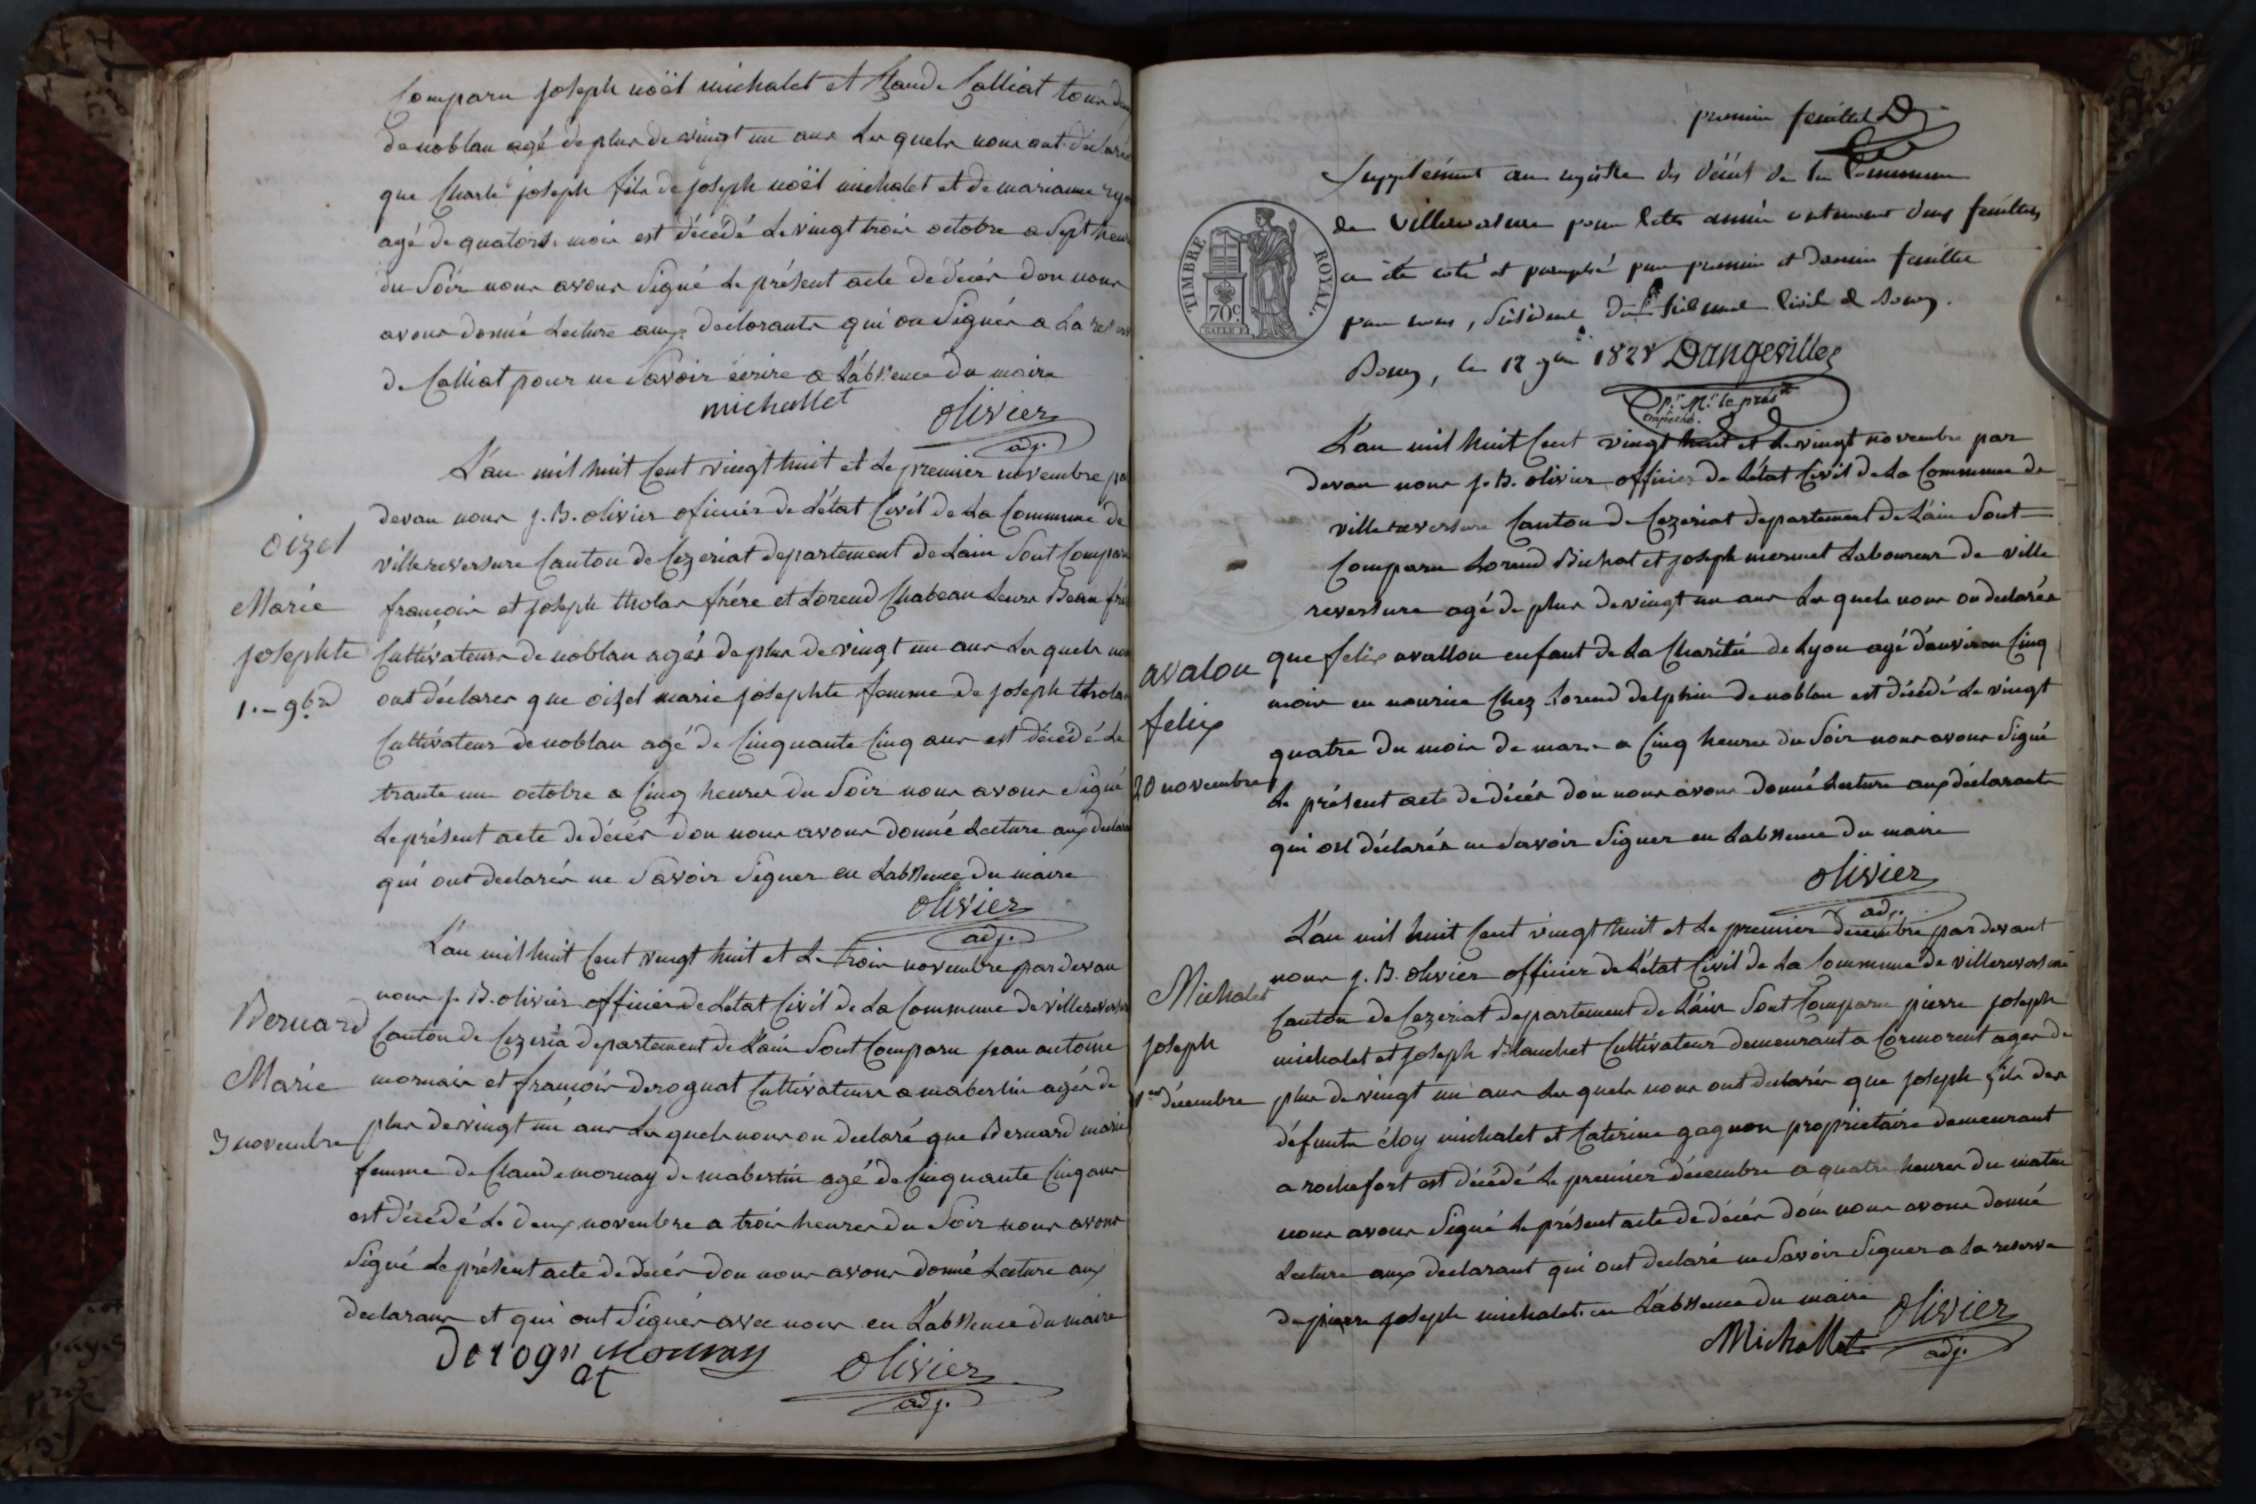 Comparu joseph noël michalet et Claude Calliat tous deux
de noblan agé de plus de vingt un ans Les quels nous ont déclarés
que Charle joseph fils de joseph noël michalet et de marianne
agé de quatorse mois est décédé Le vingt trois octobre a Sept heure
du Soir nous avons Signé Le présent acte de décés don nous
avons donné Lecture aux declarants qui on Signés a La reserve
de Calliat pour ne Savoir écrire a L'abssence du maire
michallet
olivier
adj.
L'an mil huit Cent vingt huit et Le premier novembre par
devan nous j. B. olivier oficier de L'état Civil de La Commune de
villereversure Canton de Cezeriat departement de Lain Sont Comparu
oizel
Marie
josephte
1.er 9bre
françois et joseph tholas frére et Lorend Chabeau Leurs Beau frére
Cultivateurs de noblan agés de plus de vingt un ans Les quels nous
ont déclarer que oizel marie josephte femme de joseph tholas
Cultivateur de noblan agé de Cinquante Cinq ans est décédé Le
trante un octobre a Cinq heures du Soir nous avons Signé
Le présent acte de décés don nous avons donné Lecture aux declarants
qui ont declarés ne Savoir Signer en Labssence du maire
olivier
adj.
L'an mil huit Cent vingt huit et Le trois novembre par devan
nous j. B. olivier officier de L'état Civil de La Commune de villereversure
Bernard
Marie
3 novembre
Canton de Cezeria departement de L'ain Sont Comparu jean antoine
mornais et françois derognat Cultivateurs a mabertin agés de
plus de vingt un ans Les quels nous on declaré que Bernard marie
femme de Claude mornay de mabertin agé de Cinquante Cinq ans
est décédé Le deux novembre a trois heures du Soir nous avons
Signé Le présent acte de décés don nous avons donné Lecture aux
declarans et qui ont Signés avec nous en L'abssence du maire
derogn
at
Mournay
olivier
adj.
premier feuillet D
Supplément au registre des décès de la Commune
de Villereversure pour cette année contenant deux feuillets
TIMBRE ROYAL
70c
a été coté et paraphé par premier et dernier feuillet
par nous, Président du tribunal Civil de Bourg.
Bourg, le 12 9bre 1828 Dangeville
pr. Mr. le présdt
empêché.
L'an mil huit Cent vingt huit et Le vingt novembre par
devan nous j. B. olivier officier de L'état Civil de La Commune de
villereversure Canton de Cezeriat departement de L'ain Sont
Comparu Lorend Bichat et joseph mermet Laboureur de ville
reversure agé de plus de vingt un ans Les quels nous on declarés
avalon
felix
20 novembre
que felix avallon enfant de La Charitée de Lyon agé d'anviron Cinq
mois en nourice Chez Lorend delphin de noblan est décédé Le vingt
quatre du mois de mars a Cinq heures du Soir nous avons Signé
Le présent acte de décés don nous avons donné Lecture aux déclarants
qui ont déclarés ne Savoir Signer en Labssence du maire
olivier
adj.
L'an mil huit Cent vingt huit et Le premier decembre par devant
nous j. B. olivier officier de L'état Civil de La Commune de villereversure
Michalet
joseph
1er décembre
Canton de Cezeriat departement de L'ain Sont Comparu pierre joseph
michalet et joseph Blanchet Cultivateur demeurant a Cormorent ages de
plus de vingt un ans Les quels nous ont declarés que joseph fils des
défunts éloy michalet et Caterine gagnon proprietaire demeurant
a rochefort est décédé Le premier décembre a quatre heures du matin
nous avons Signé Le présent acte de décés dont nous avons donné
Lecture aux declarant qui ont declaré ne Savoir Signer a La reserve
de pierre joseph michalet en L'abssence du maire
Michallet
olivier
adj.